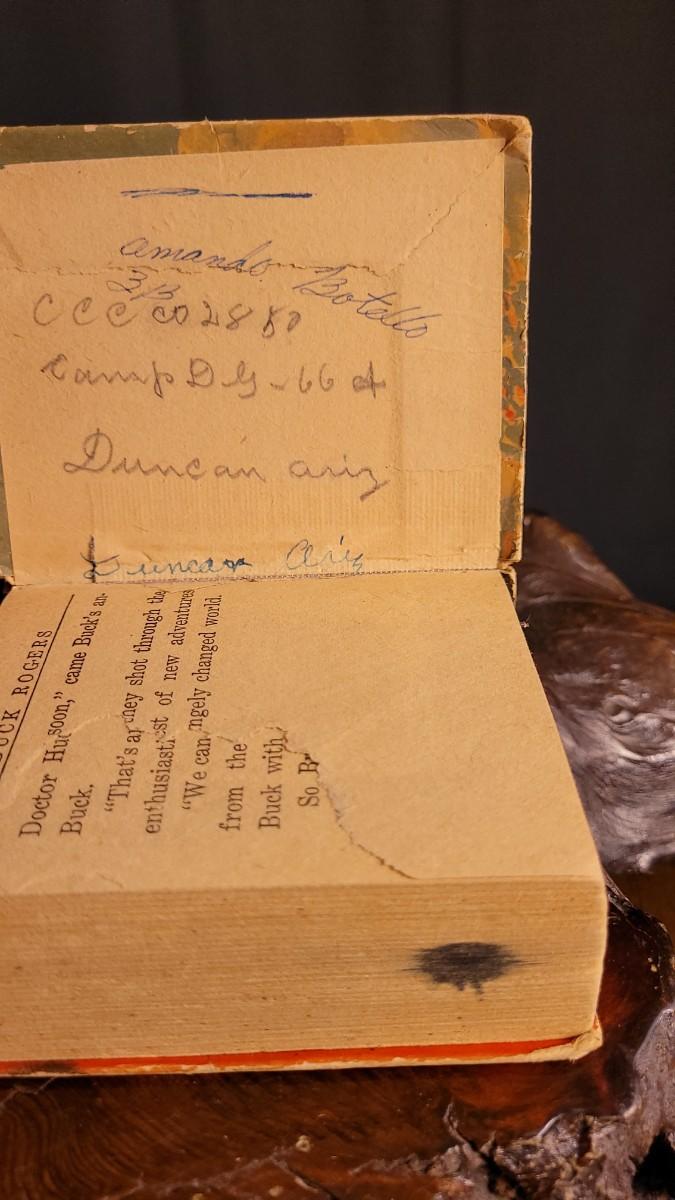 amando Botello
3B
CCC CO 2880
Camp DG-66 A
Duncan ariz
Duncan Ariz
BUCK ROGERS
soon," came Buck's an-
Doctor Hu
Buck.
"That's a
they shot through the
enthusiast
st of new adventures
"We can
ngely changed world.
from the
Buck with
So B